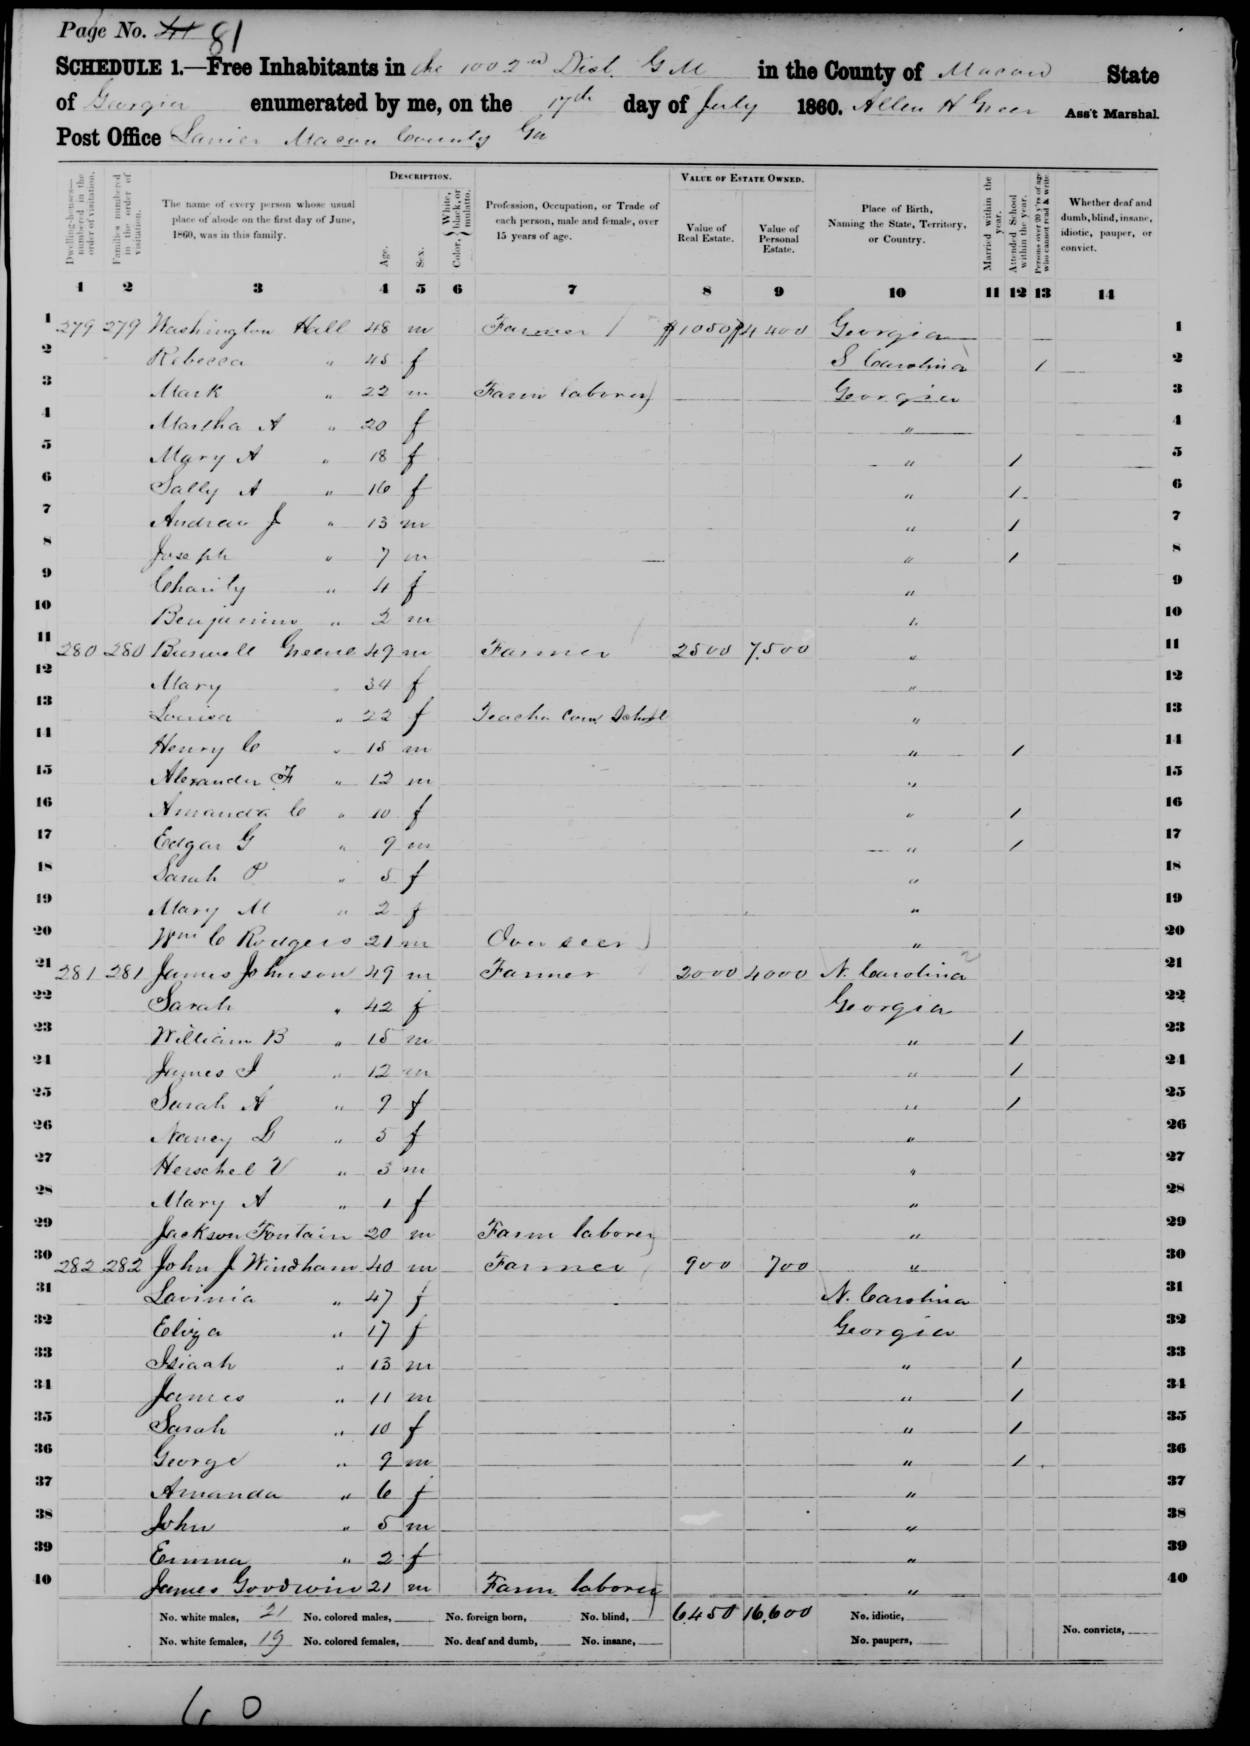 Page No. 41 81
SCHEDULE 1.—Free Inhabitants in the 1002nd Dist. G M in the County of Macon State
of Georgia enumerated by me, on the 17th day of July 1860. Allen H Greer Ass't Marshal.
Post Office Lanier Macon County Ga
Dwelling-houses—numbered in the order of visitation.
Families numbered in the order of visitation.
The name of every person whose usual place of abode on the first day of June, 1860, was in this family.
DESCRIPTION.
Age.
Sex.
Color, White, black, or mulatto.
Profession, Occupation, or Trade of each person, male and female, over 15 years of age.
VALUE OF ESTATE OWNED.
Value of Real Estate.
Value of Personal Estate.
Place of Birth, Naming the State, Territory, or Country.
Married within the year.
Attended School within the year.
Persons over 20 y'rs of age who cannot read & write
Whether deaf and dumb, blind, insane, idiotic, pauper, or convict.
1 2 3 4 5 6 7 8 9 10 11 12 13 14
1 279 279 Washington Hall 48 m Farmer $1050 $4400 Georgia 1
2 Rebecca " 45 f S Carolina / 2
3 Mark " 22 m Farm laborer Georgia 3
4 Martha A " 20 f " 4
5 Mary A " 18 f " / 5
6 Sally A " 16 f " / 6
7 Andrew J " 13 m " / 7
8 Joseph " 7 m " / 8
9 Charity " 4 f " 9
10 Benjamin " 2 m " 10
11 280 280 Burwell Greene 49 m Farmer 2500 7,500 " 11
12 Mary " 34 f " 12
13 Louisa " 22 f Teacher Com School " 13
14 Henry C " 15 m " / 14
15 Alexander F " 12 m " 15
16 Amanda C " 10 f " / 16
17 Edgar G " 9 m " / 17
18 Sarah P " 5 f " 18
19 Mary M " 2 f " 19
20 Wm C Rodgers 21 m Overseer " 20
21 281 281 James Johnson 49 m Farmer 2000 4000 N. Carolina 21
22 Sarah " 42 f Georgia 22
23 William B " 15 m " / 23
24 James I " 12 m " / 24
25 Sarah A " 9 f " / 25
26 Nancy L " 5 f " 26
27 Herschel V " 3 m " 27
28 Mary A " 1 f " 28
29 Jackson Fontain 20 m Farm laborer " 29
30 282 282 John J Windham 40 m Farmer 900 700 " 30
31 Lavinia " 47 f N. Carolina 31
32 Eliza " 17 f Georgia 32
33 Isiaah " 13 m " / 33
34 James " 11 m " / 34
35 Sarah " 10 f " / 35
36 George " 9 m " / 36
37 Amanda " 6 f " 37
38 John " 5 m " 38
39 Emma " 2 f " 39
40 James Goodwin 21 m Farm laborer " 40
No. white males, 21 No. colored males, No. foreign born, No. blind, 6,450 16,600 No. idiotic,
No. white females, 19 No. colored females, No. deaf and dumb, No. insane, No. paupers, No. convicts,
60